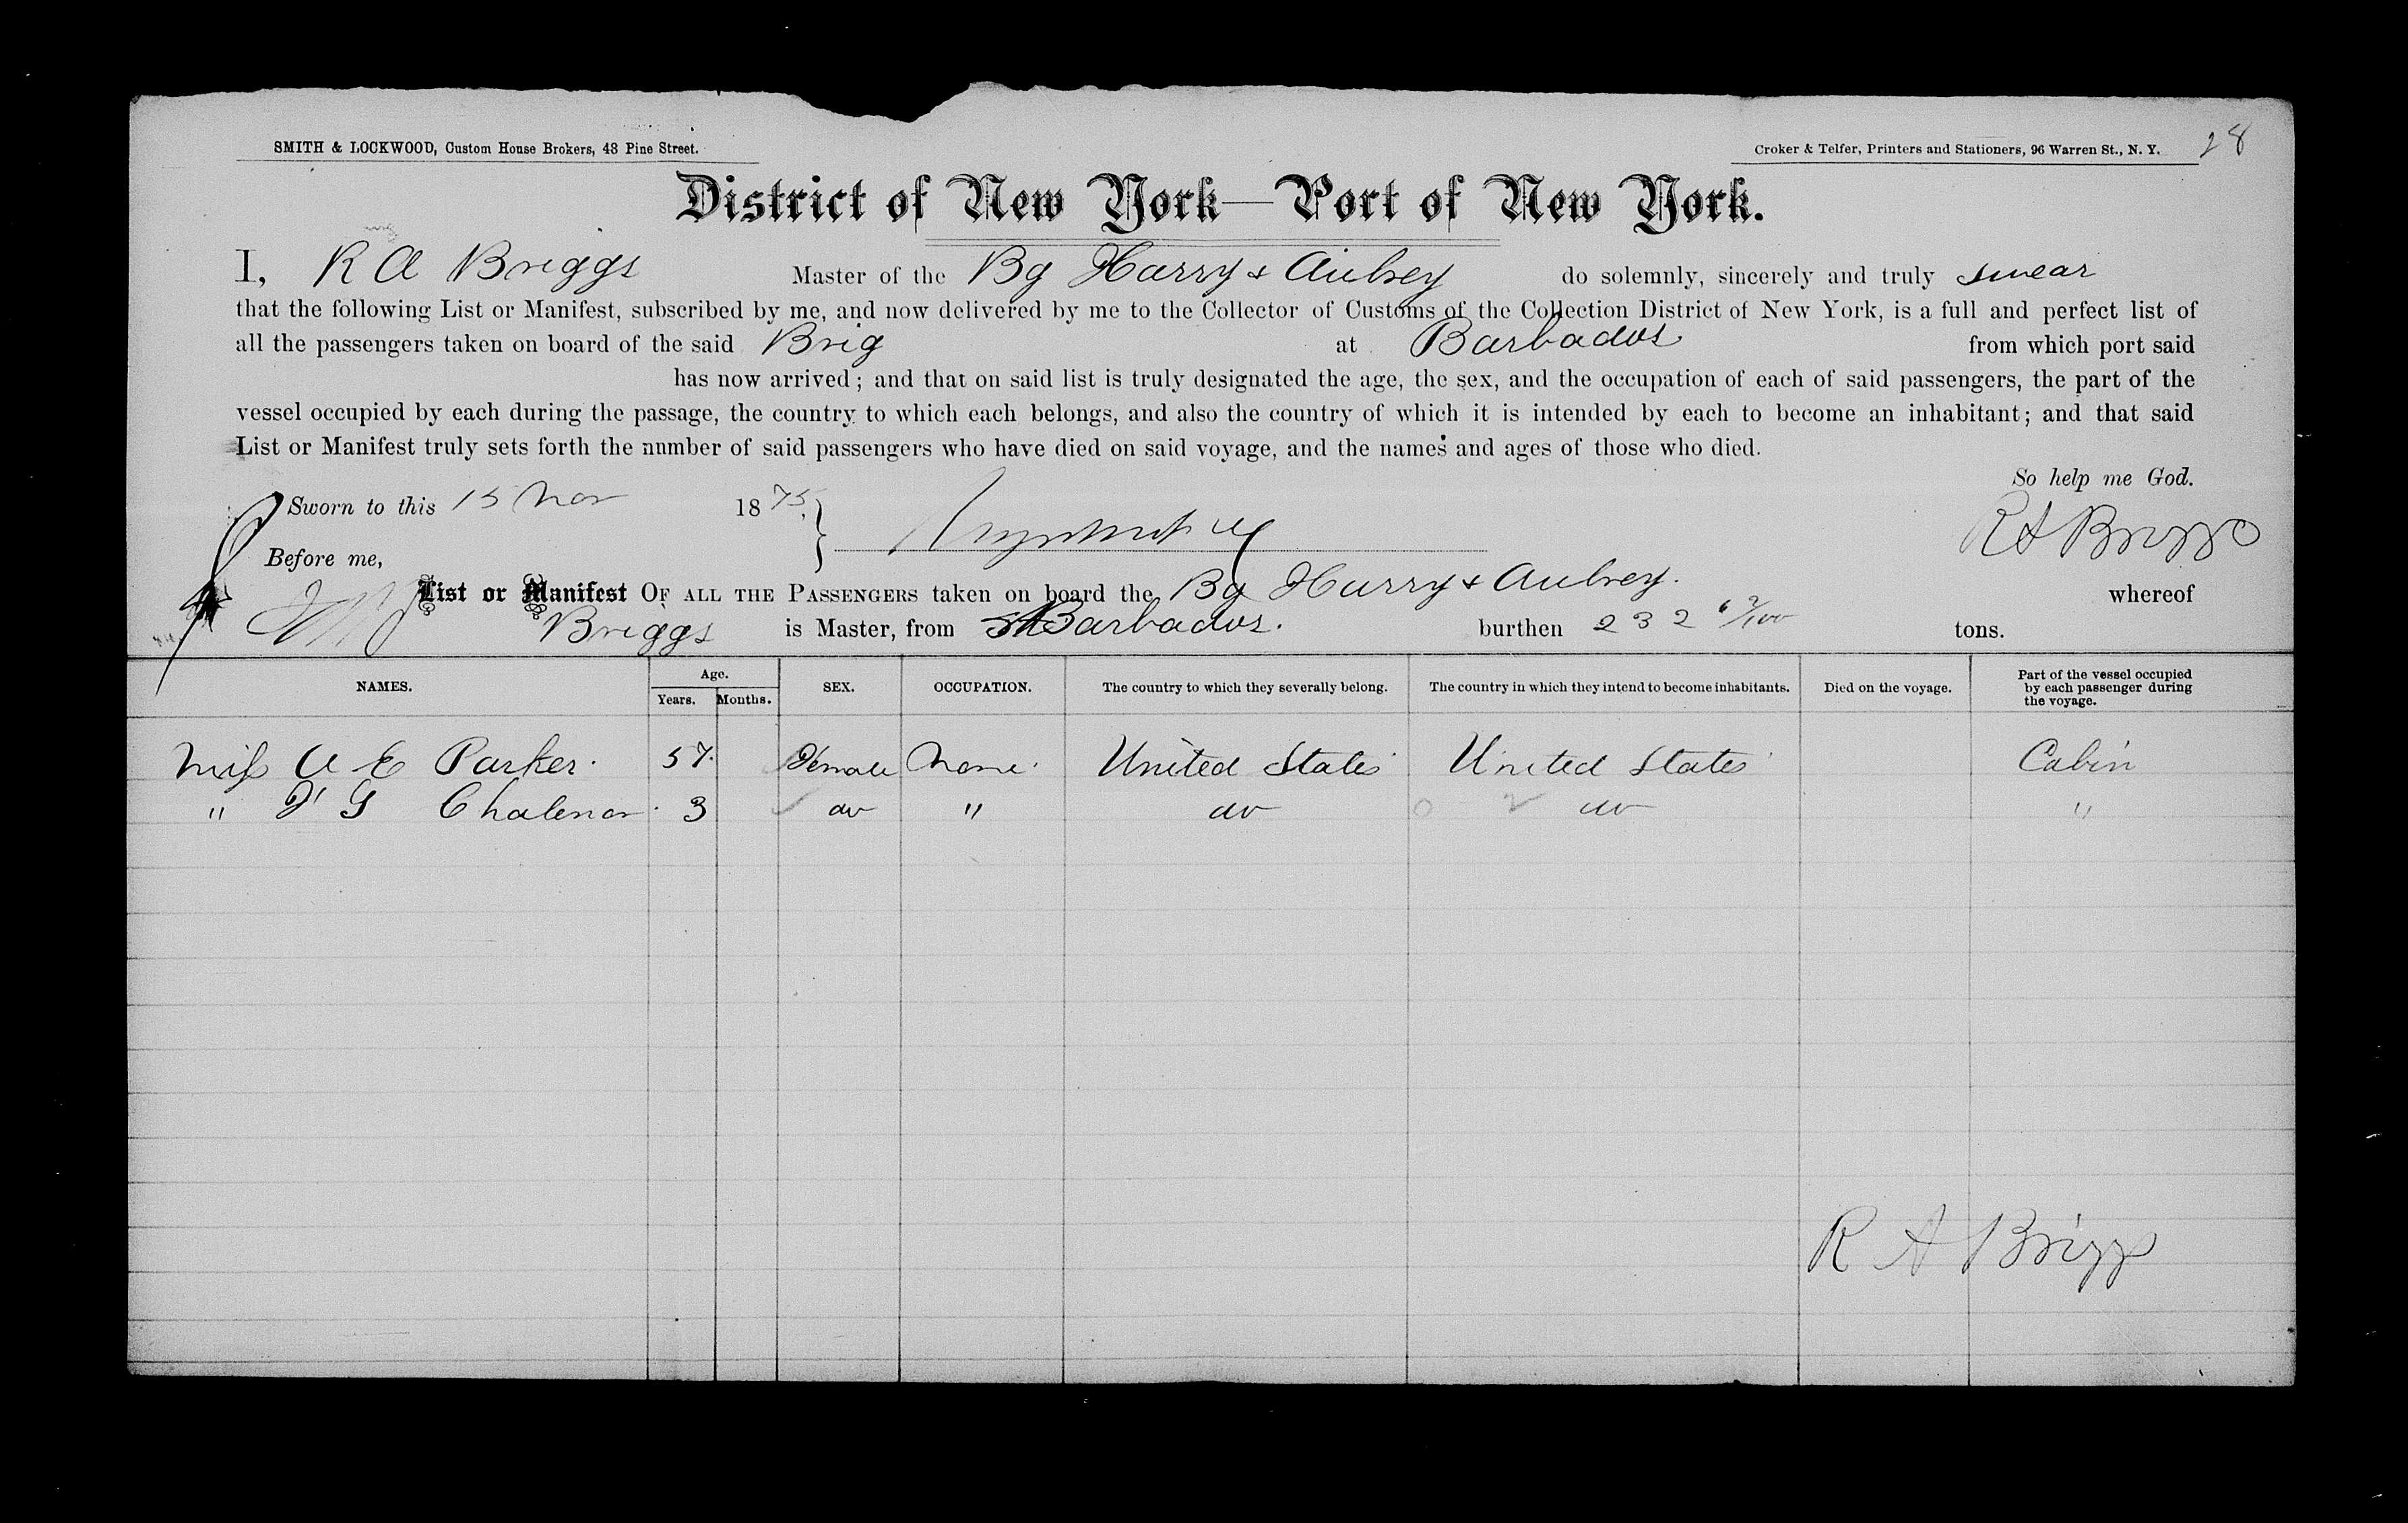 SMITH & LOCKWOOD, Custom House Brokers, 48 Pine Street.
Croker & Telfer, Printers and Stationers, 96 Warren St., N. Y. 28
District of New York—Port of New York.
I, R A Briggs Master of the Bg Harry & Aubrey do solemnly, sincerely and truly swear
that the following List or Manifest, subscribed by me, and now delivered by me to the Collector of Customs of the Collection District of New York, is a full and perfect list of
all the passengers taken on board of the said Brig at Barbados from which port said
has now arrived; and that on said list is truly designated the age, the sex, and the occupation of each of said passengers, the part of the
vessel occupied by each during the passage, the country to which each belongs, and also the country of which it is intended by each to become an inhabitant; and that said
List or Manifest truly sets forth the number of said passengers who have died on said voyage, and the names and ages of those who died.
So help me God.
Sworn to this 15 Nov 1875. R A Briggs
Before me,
List or Manifest OF ALL THE PASSENGERS taken on board the Bg Harry & Aubrey. whereof
Briggs is Master, from Barbados. burthen 232 tons.
NAMES. Age. Years. Months. SEX. OCCUPATION. The country to which they severally belong. The country in which they intend to become inhabitants. Died on the voyage. Part of the vessel occupied by each passenger during the voyage.
Miss A E Parker. 57. Female None. United States United States Cabin
" G 3 do " do do "
R A Briggs